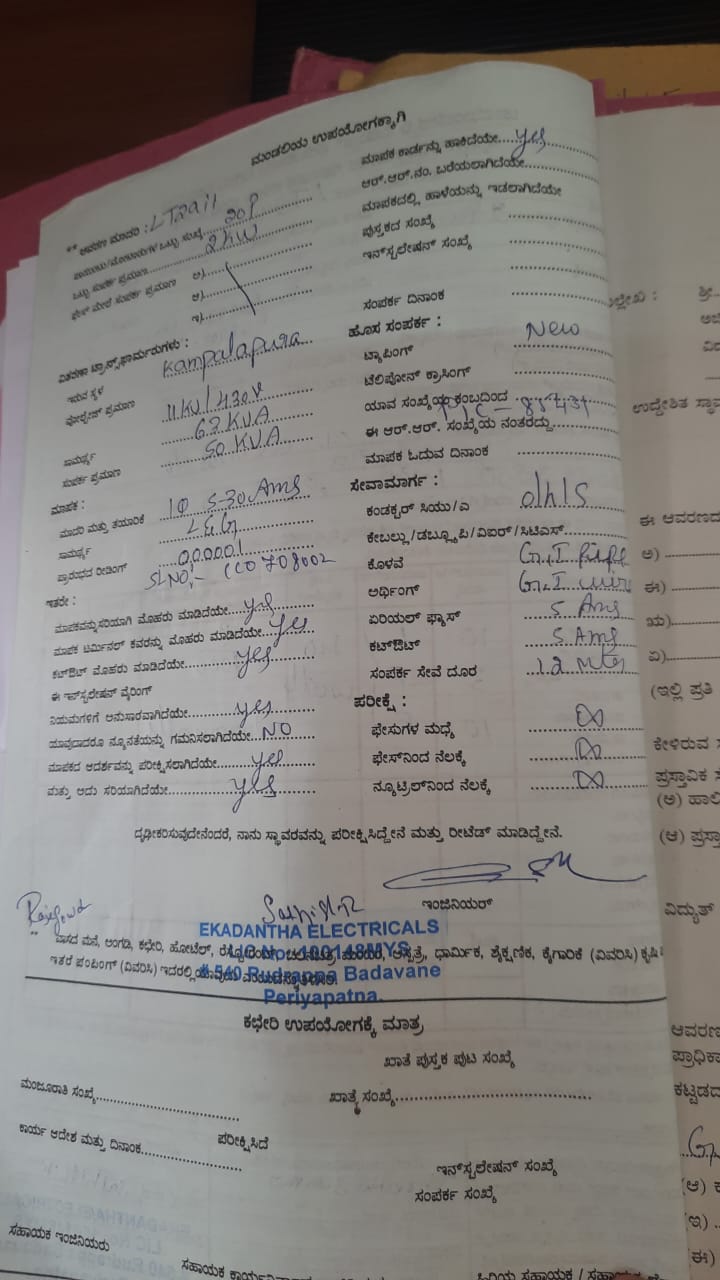 ಮಂಡಲಿಯ ಉಪಯೋಗಕ್ಕಾಗಿ
** ಆವರಣ ಮಾದರಿ :
ಒಟ್ಟು ಸಂಪರ್ಕ ಪ್ರಮಾಣ 2 KW
ಫೇಸ್ ಮೇಲೆ ಸಂಪರ್ಕ ಪ್ರಮಾಣ ಅ)
ಆ)
ಇ)
ವಿತರಣಾ ಟ್ರಾನ್ಸ್‌ಫಾರ್ಮರುಗಳು :
ಇರುವ ಸ್ಥಳ Kampalapura
ವೋಲ್ಟೇಜ್ ಪ್ರಮಾಣ 11 KV/430V
ಸಾಮರ್ಥ್ಯ 63 KVA
ಸಂಪರ್ಕ ಪ್ರಮಾಣ 50 KVA
ಮಾಪಕ :
ಮಾದರಿ ಮತ್ತು ತಯಾರಿಕೆ 1Φ 5-30 Ams
ಸಾಮರ್ಥ್ಯ L&G
ಪ್ರಾರಂಭದ ರೀಡಿಂಗ್ 000001
SL NO:-
ಇತರೇ :
ಮಾಪಕವನ್ನು ಸರಿಯಾಗಿ ಮೊಹರು ಮಾಡಿದೆಯೇ....yes
ಮಾಪಕ ಟರ್ಮಿನಲ್ ಕವರನ್ನು ಮೊಹರು ಮಾಡಿದೆಯೇ....yes
ಕಟ್‌ಔಟ್ ಮೊಹರು ಮಾಡಿದೆಯೇ....yes
ಈ ಇನ್‌ಸ್ಟಲೇಷನ್ ವೈರಿಂಗ್
ನಿಯಮಗಳಿಗೆ ಅನುಸಾರವಾಗಿದೆಯೇ....yes
ಯಾವುದಾದರೂ ನ್ಯೂನತೆಯನ್ನು ಗಮನಿಸಲಾಗಿದೆಯೇ...NO
ಮಾಪಕದ ಆದರ್ಶವನ್ನು ಪರೀಕ್ಷಿಸಲಾಗಿದೆಯೇ....yes
ಮತ್ತು ಅದು ಸರಿಯಾಗಿದೆಯೇ....yes
ಮಾಪಕ ಕಾರ್ಡನ್ನು ಹಾಕಿದೆಯೇ....yes
ಆರ್.ಆರ್.ನಂ. ಬರೆಯಲಾಗಿದೆಯೇ....
ಮಾಪಕದಲ್ಲಿ ಹಾಳೆಯನ್ನು ಇಡಲಾಗಿದೆಯೇ
ಪುಸ್ತಕದ ಸಂಖ್ಯೆ
ಇನ್‌ಸ್ಟಲೇಷನ್ ಸಂಖ್ಯೆ
ಸಂಪರ್ಕ ದಿನಾಂಕ
ಹೊಸ ಸಂಪರ್ಕ :
ಟ್ಯಾಪಿಂಗ್ New
ಟೆಲಿಪೋನ್ ಕ್ರಾಸಿಂಗ್
ಯಾವ ಸಂಖ್ಯೆಯ ಕಂಬದಿಂದ
ಈ ಆರ್.ಆರ್. ಸಂಖ್ಯೆಯ ನಂತರದ್ದು
ಮಾಪಕ ಓದುವ ದಿನಾಂಕ
ಸೇವಾಮಾರ್ಗ :
ಕಂಡಕ್ಟರ್ ಸಿಯು/ಎ o/h/s
ಕೇಬಲ್ಲು/ಡಬ್ಲ್ಯೂಪಿ/ವಿಐರ್/ಸಿಟಿಎಸ್
ಕೊಳವೆ G.I pipe
ಅರ್ಥಿಂಗ್ G.I wire
ಏರಿಯಲ್ ಫ್ಯೂಸ್ 5 Ams
ಕಟ್‌ಔಟ್ 5 Ams
ಸಂಪರ್ಕ ಸೇವೆ ದೂರ 12 Mts
ಪರೀಕ್ಷೆ :
ಫೇಸುಗಳ ಮಧ್ಯೆ ∞
ಫೇಸ್‌ನಿಂದ ನೆಲಕ್ಕೆ ∞
ನ್ಯೂಟ್ರಲ್‌ನಿಂದ ನೆಲಕ್ಕೆ ∞
ದೃಢೀಕರಿಸುವುದೇನೆಂದರೆ, ನಾನು ಸ್ಥಾವರವನ್ನು ಪರೀಕ್ಷಿಸಿದ್ದೇನೆ ಮತ್ತು ರೀಟೆಡ್ ಮಾಡಿದ್ದೇನೆ.
ಇಂಜಿನಿಯರ್
EKADANTHA ELECTRICALS
** ವಾಸದ ಮನೆ, ಅಂಗಡಿ, ಕಛೇರಿ, ಹೋಟೆಲ್, ಆಸ್ಪತ್ರೆ, ಧಾರ್ಮಿಕ, ಶೈಕ್ಷಣಿಕ, ಕೈಗಾರಿಕೆ (ವಿವರಿಸಿ)
LIC No: 100148MYS
ಇತರೆ ಪಂಪಿಂಗ್ (ವಿವರಿಸಿ)
# 540 Rudrappa Badavane
Periyapatna.
ಕಛೇರಿ ಉಪಯೋಗಕ್ಕೆ ಮಾತ್ರ
ಖಾತೆ ಪುಸ್ತಕ ಪುಟ ಸಂಖ್ಯೆ
ಮಂಜೂರಾತಿ ಸಂಖ್ಯೆ
ಖಾತೆ ಸಂಖ್ಯೆ
ಕಾರ್ಯ ಆದೇಶ ಮತ್ತು ದಿನಾಂಕ
ಪರೀಕ್ಷಿಸಿದೆ
ಇನ್‌ಸ್ಟಲೇಷನ್ ಸಂಖ್ಯೆ
ಸಂಪರ್ಕ ಸಂಖ್ಯೆ
ಸಹಾಯಕ ಇಂಜಿನಿಯರು
ಶ್ರೀ
ಉದ್ದೇಶಿತ
ಈ ಆವರಣದ
ಅ)
ಈ)
ಏ)
(ಇಲ್ಲಿ ಪ್ರತಿ
ಕೇಳಿರುವ
ಪ್ರಸ್ತಾವಿಕ
(ಅ) ಹಾಲಿ
(ಆ)
ವಿದ್ಯುತ್
ಆವರಣ
ಕಟ್ಟಡದ
(ಆ)
(ಇ)
(ಈ)